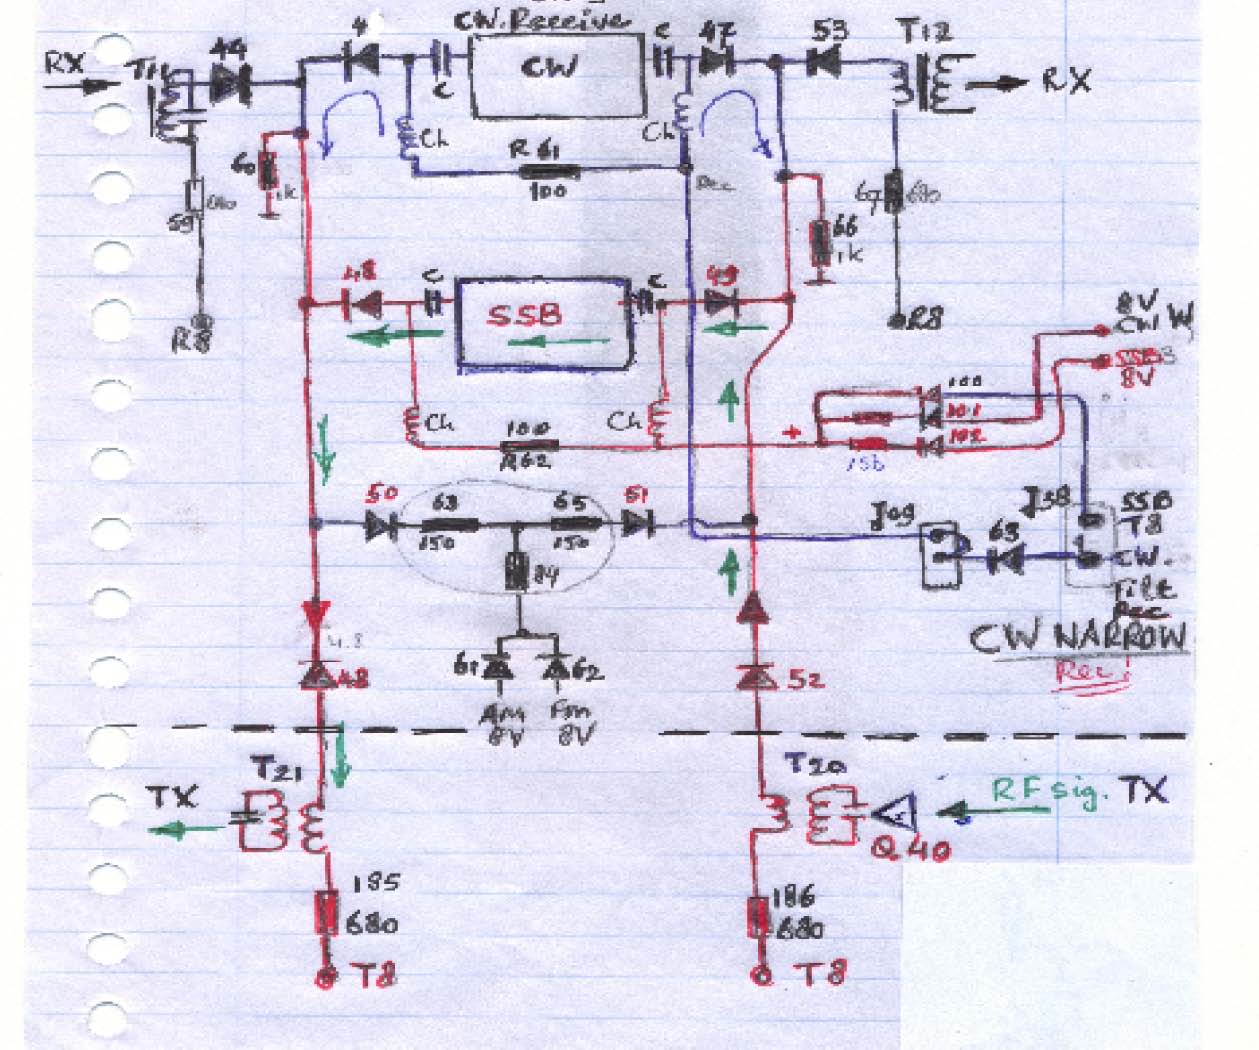 CW. Receive
RX
T11
44
4
C
CW
C
47
53
T12
RX
Ch
Ch
R 61
100
Rec
60
1k
59
R8
67
680
66
1k
R8
48
C
SSB
C
49
8V
CW W
SSB
8V
100
101
102
+
156
Ch
100
R62
Ch
50
63
150
65
150
51
84
J09
63
J38
SSB
T8
CW.
Filt
Rec
CW NARROW
Rec!
61
62
Am
8V
Fm
8V
48
52
T21
TX
T20
RF sig. TX
Q40
185
680
T8
186
680
T8